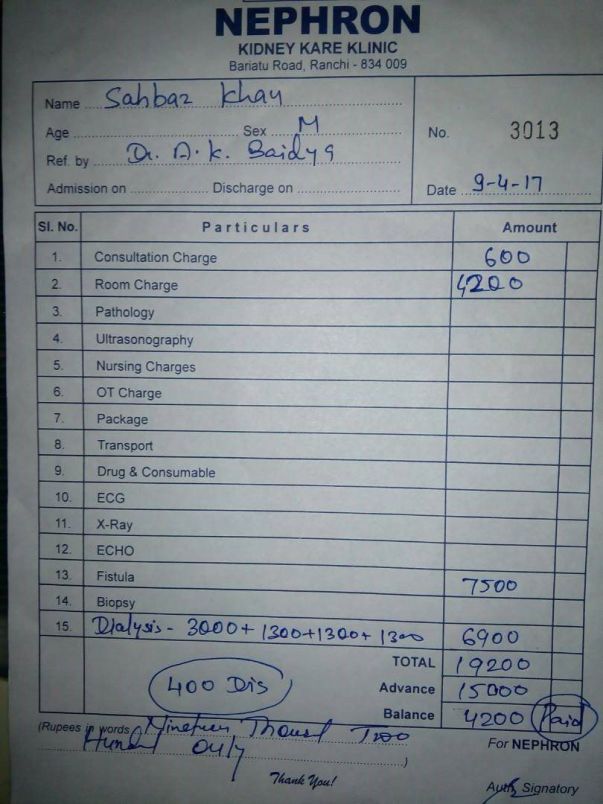 NEPHRON
KIDNEY KARE KLINIC
Bariatu Road, Ranchi - 834 009
Name Sahbaz Khan
Age Sex M
Ref. by Dr. A. K. Baidya
Admission on Discharge on
No. 3013
Date 9-4-17
Sl. No. Particulars Amount
1. Consultation Charge 600
2. Room Charge 4200
3. Pathology
4. Ultrasonography
5. Nursing Charges
6. OT Charge
7. Package
8. Transport
9. Drug & Consumable
10. ECG
11. X-Ray
12. ECHO
13. Fistula 7500
14. Biopsy
15. Dialysis - 3000+1300+1300+1300 6900
TOTAL 19200
400 Dis Advance 15000
Balance 4200 Paid
(Rupees in words Nineteen Thousand Two
Hund Only )
For NEPHRON
Thank You!
Auth. Signatory